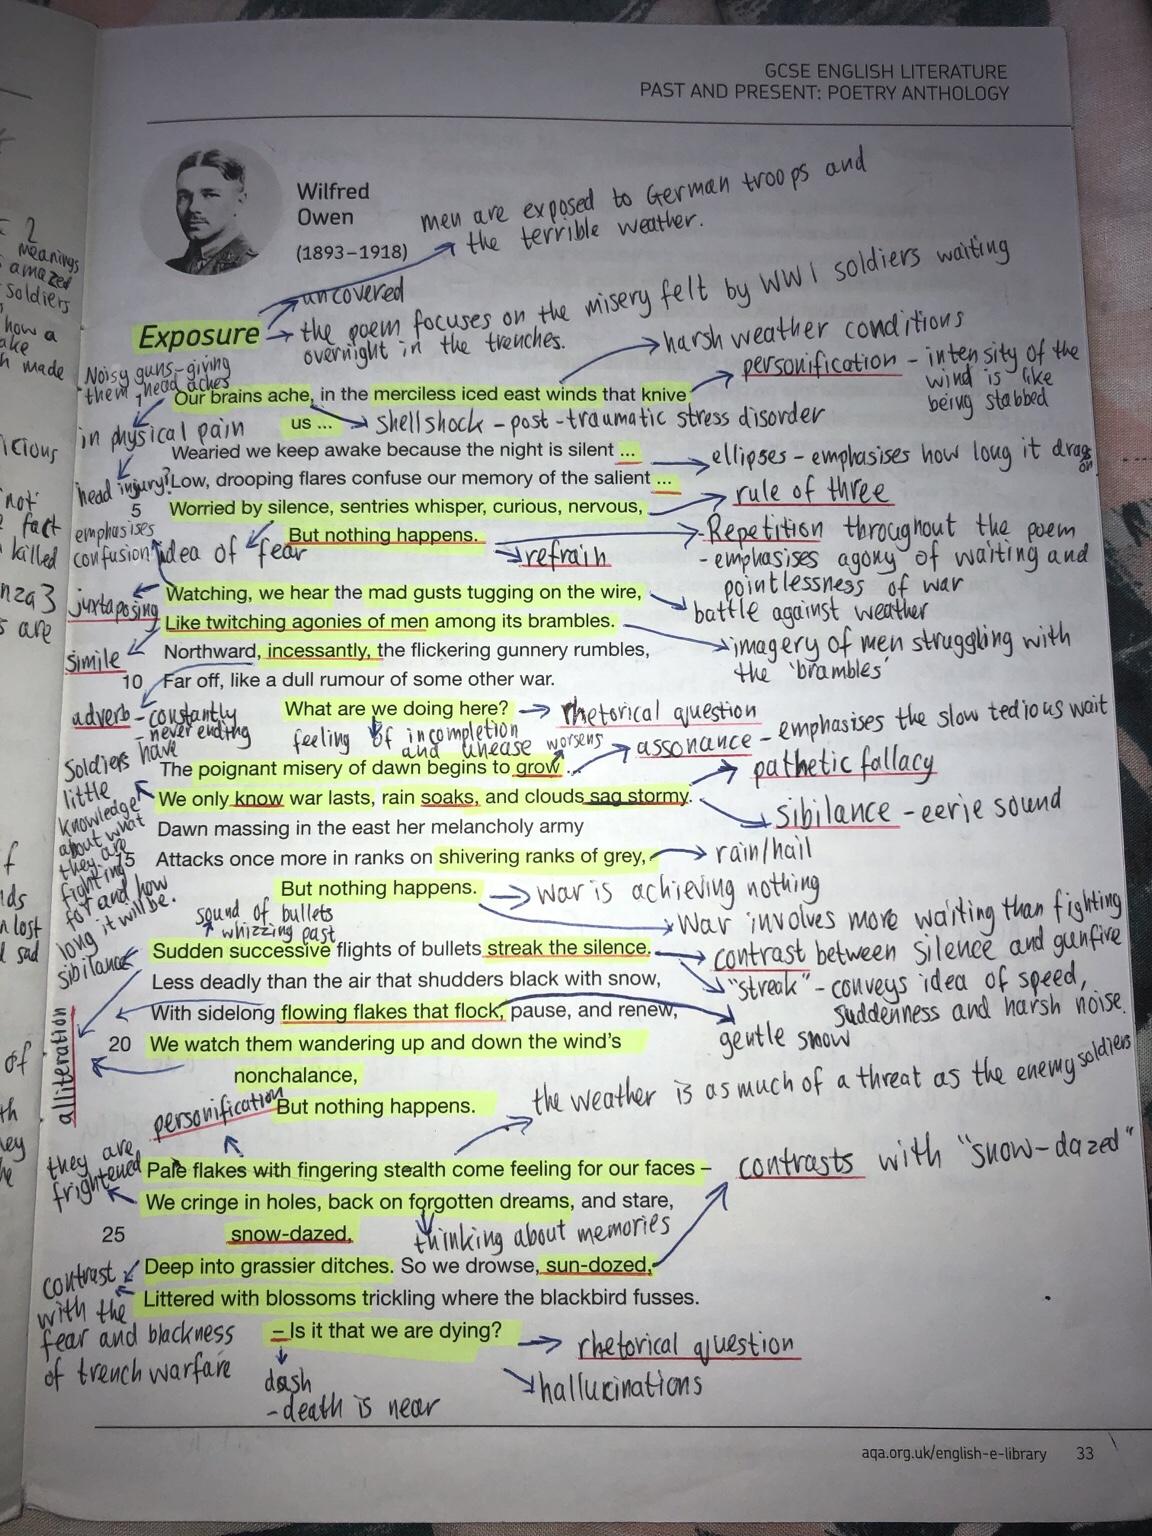 GCSE ENGLISH LITERATURE
PAST AND PRESENT: POETRY ANTHOLOGY
Wilfred
Owen
(1893–1918)
men are exposed to German troops and
the terrible weather.
uncovered
Exposure
the poem focuses on the misery felt by WW1 soldiers waiting
overnight in the trenches.
harsh weather conditions
personification - intensity of the
wind is like
being stabbed
Noisy guns - giving
them head aches
Our brains ache, in the merciless iced east winds that knive
us ...
shellshock - post-traumatic stress disorder
in physical pain
Wearied we keep awake because the night is silent ...
ellipses - emphasises how long it drags
on
head injury?
Low, drooping flares confuse our memory of the salient ...
rule of three
5 Worried by silence, sentries whisper, curious, nervous,
But nothing happens.
emphasises
confusion
idea of fear
refrain
Repetition throughout the poem
- emphasises agony of waiting and
pointlessness of war
Watching, we hear the mad gusts tugging on the wire,
battle against weather
juxtaposing
Like twitching agonies of men among its brambles.
imagery of men struggling with
the 'brambles'
simile
Northward, incessantly, the flickering gunnery rumbles,
10 Far off, like a dull rumour of some other war.
adverb - constantly
- never ending
What are we doing here?
rhetorical question
feeling of incompletion
and unease
worsens
assonance - emphasises the slow tedious wait
The poignant misery of dawn begins to grow ...
pathetic fallacy
Soldiers have
little
knowledge
about what
they are
fighting
for and how
long it will be.
We only know war lasts, rain soaks, and clouds sag stormy.
sibilance - eerie sound
Dawn massing in the east her melancholy army
15 Attacks once more in ranks on shivering ranks of grey,
rain/hail
But nothing happens.
war is achieving nothing
War involves more waiting than fighting
sound of bullets
whizzing past
sibilance
Sudden successive flights of bullets streak the silence.
contrast between silence and gunfire
"streak" - conveys idea of speed,
suddenness and harsh noise.
Less deadly than the air that shudders black with snow,
With sidelong flowing flakes that flock, pause, and renew,
gentle snow
alliteration
20 We watch them wandering up and down the wind's
nonchalance,
personification
But nothing happens.
the weather is as much of a threat as the enemy soldiers
they are
frightened
Pale flakes with fingering stealth come feeling for our faces –
contrasts with "snow-dazed"
We cringe in holes, back on forgotten dreams, and stare,
25 snow-dazed,
thinking about memories
Deep into grassier ditches. So we drowse, sun-dozed,
Littered with blossoms trickling where the blackbird fusses.
contrast
with the
fear and blackness
of trench warfare
– Is it that we are dying?
rhetorical question
hallucinations
dash
- death is near
aqa.org.uk/english-e-library 33
2
meanings
amazed
soldiers
how a
made
icious
'not'
fact
killed
nza 3
s are
f
lost
sad
of